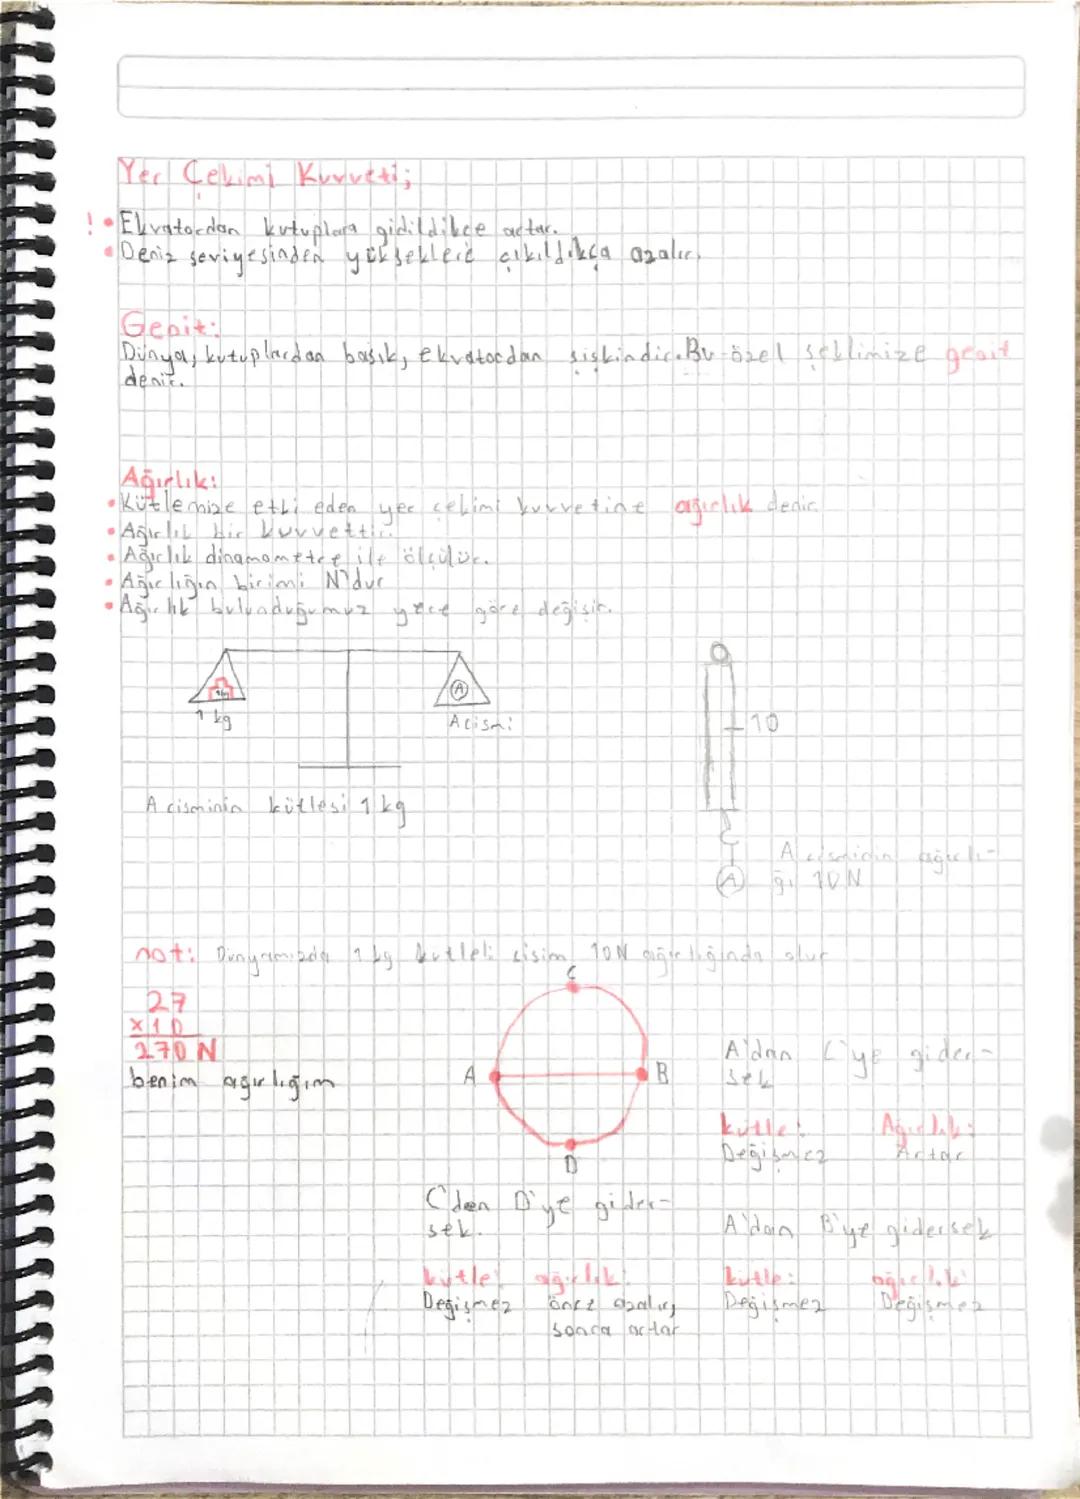 Yer Çekimi Kuvveti;
! • Ekvatordan kutuplara gidildikçe artar.
• Deniz seviyesinden yükseklere çıkıldıkça azalır.
Geoit:
Dünya, kutuplardan basık, ekvatordan şişkindir. Bu özel şeklimize geoit
denir.
Ağırlık:
• Kütlemize etki eden yer çekimi kuvvetine ağırlık denir
• Ağırlık bir kuvvettir.
• Ağırlık dinamometre ile ölçülür.
• Ağırlığın birimi N'dur
• Ağırlık bulunduğumuz yere göre değişir.
1kg
A
1 kg
A cismi
10
A cisminin kütlesi 1 kg
A
A cisminin ağırlı-
ğı 10 N
not: Dünyamızda 1 kg kütleli cisim 10N ağırlığında olur
27
x10
270 N
benim ağırlığım
C
A
B
D
A'dan C'ye gider-
sek
kütle: Ağırlık:
Değişmez Artar
C'den D'ye gider-
sek.
kütle: ağırlık:
Değişmez önce azalır,
sonra artar
A'dan B'ye gidersek
kütle: ağırlık:
Değişmez Değişmez